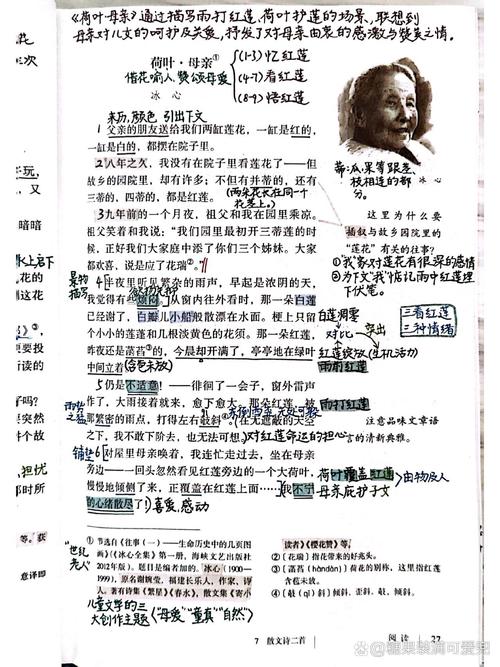 《荷叶母亲》通过描写雨打红莲、荷叶护莲的场景,联想到
母亲对儿女的呵护及关爱,抒发了对母亲由衷的感激与赞美之情。
荷叶·母亲①
借花喻人,赞颂母爱
冰心
(1-3) 忆红莲
(4-7) 看红莲
(8-9) 悟红莲
来历,颜色,引出下文
1 父亲的朋友送给我们两缸莲花,一缸是红的,
一缸是白的,都摆在院子里。
2 八年之久,我没有在院子里看莲花了——但
故乡的园院里,却有许多;不但有并蒂的,还有
三蒂的,四蒂的,都是红莲。
(两朵花长在同一个
花茎上。)
3 九年前的一个月夜,祖父和我在园里乘凉。
祖父笑着和我说:“我们园里最初开三蒂莲的时
候,正好我们大家庭中添了你们三个姊妹。大家
都欢喜,说是应了花瑞②。”
4 半夜里听见繁杂的雨声,早起是浓阴的天,
我觉得有些烦闷。从窗内往外看时,那一朵白莲
已经谢了,白瓣儿小船般散漂在水面。梗上只留
个小小的莲蓬和几根淡黄色的花须。那一朵红莲,
昨夜还是菡萏③的,今晨却开满了,亭亭地在绿叶
中间立着。
(含苞未放)
5 仍是不适意!——徘徊了一会子,窗外雷声
作了,大雨接着就来,愈下愈大。那朵红莲,被
那繁密的雨点,打得左右攲斜④。在无遮蔽的天空
之下,我不敢下阶去,也无法可想。
对红莲命运的担心
6 对屋里母亲唤着,我连忙走过去,坐在母亲
旁边——一回头忽然看见红莲旁边的一个大荷叶,
慢慢地倾侧了来,正覆盖在红莲上面……我不宁
的心绪散尽了!
喜爱,感动
蒂:瓜、果等跟茎、
枝相连的部
分。
冰心
这里为什么要
插叙与故乡园院里的
“莲花”有关的往事?
①我家对莲花有很深的感情
②为下文“我”惦记雨中红莲埋
下伏笔。
白莲凋零
对比
突出
红莲绽放(生机活力)
雨前红莲
三看红莲
三种情绪
雨打红莲
注意品味文章语
言的清新典雅。
荷叶覆盖红莲
母亲庇护子女
由物及人
雨势
之猛
铺垫
① 节选自《往事(一)——生命历史中的几页图
画》(《冰心全集》第一册,海峡文艺出版社
2012年版)。题目是编者加的。冰心(1900—
1999),原名谢婉莹,福建长乐人,作家、诗
人。著有诗集《繁星》《春水》,散文集《寄小
读者》《樱花赞》等。
②〔花瑞〕指花带来的好兆头。
③〔菡萏(hàndàn)〕荷花的别称,这里指红莲
含苞未放。
④〔攲(qī)斜〕倾斜,歪斜。攲,倾斜。
“世纪
老人”
儿童文学的三
大创作主题(“母爱”“童真”“自然”)
7 散文诗二首
阅读
27